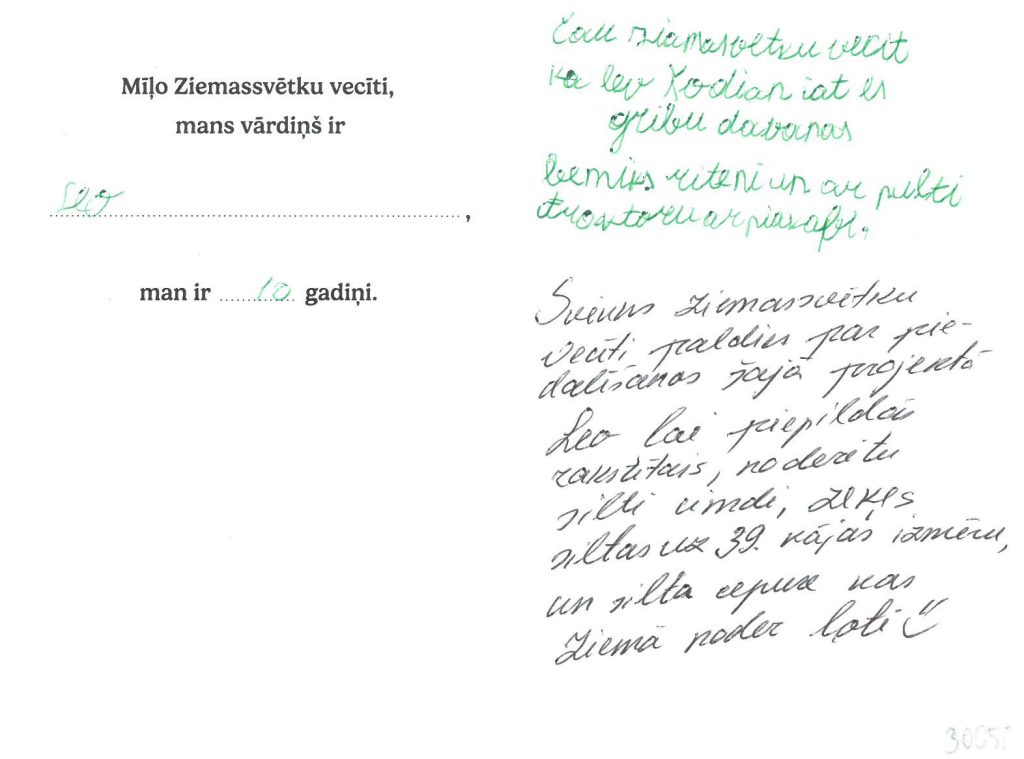 Mīļo Ziemassvētku vecīti,
mans vārdiņš ir
Leo,
man ir 10 gadiņi.
Čau ziamasvetku vecit
ka tev Xodian iat es
gribu davanas
bemiks riteni un ar pulti
traktoru ar piakabi.
Sveiks Ziemassvētku
vecīti paldies par pie-
dalīšanos šajā projektā
Leo lai piepildās
rakstītais, noderētu
silti cimdi, zeķes
siltas uz 39. kājas izmēru,
un silta cepure kas
Ziemā noder ļoti